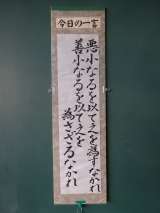 今日の一言
悪小なるを以て之を為すなかれ
善小なるを以て之を
為さざるなかれ